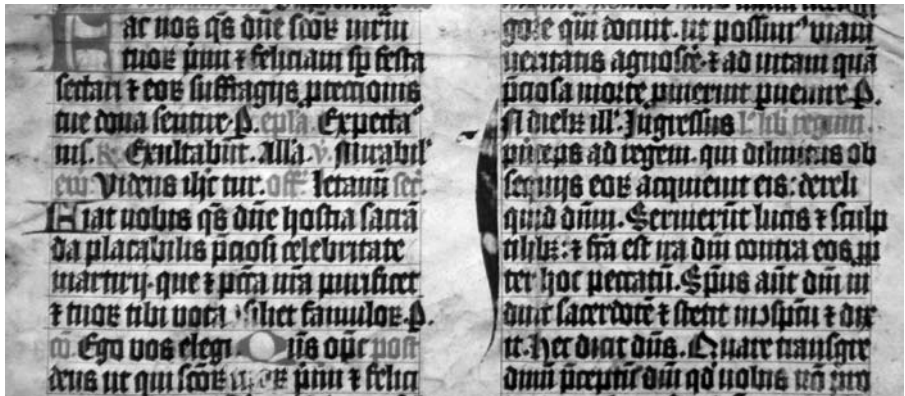 Fac nos qs dñe scoꝝ mrm̄
tuoꝝ pimi ⁊ feliciani sp festa
sectari ⁊ eoꝝ suffragijs ꝓtectionis
tue dona sentire. P. epla. Expecta
Exultabūt. Alla. v. Mirabil'
Videns ihc tur. off. letamī sec.
Fiat nobis qs dñe hostia sacrā
da placabilis p̄ciosi celebritate
martirij. que ⁊ pctā nrā purificet
⁊ tuoꝝ tibi vota famuloꝝ. P.
cō. Ego vos elegi. post
deus ut qui scoꝝ tuoꝝ pimi ⁊ felici
qui docuit. ut possim' viam
veritatis agnoscē. ⁊ ad vitam quā
p̄ciosa morte
In diebꝫ ill'. Ingressus l' lib regum.
ad regem. qui diliniens ob
sequijs eoꝝ acquieuit eis: dereli
quid dñm. Seruierūt lucis ⁊ sculp
tilibꝫ: ⁊ fca est ira dñi contra eos pp
ter hoc peccatū. Spūs aūt dñi in
duit sacerdotē ⁊ stetit ⁊ dix
it. Hec dicit dñs. Quare transgre
dimī p̄ceptū dñi qd uobis nō pro